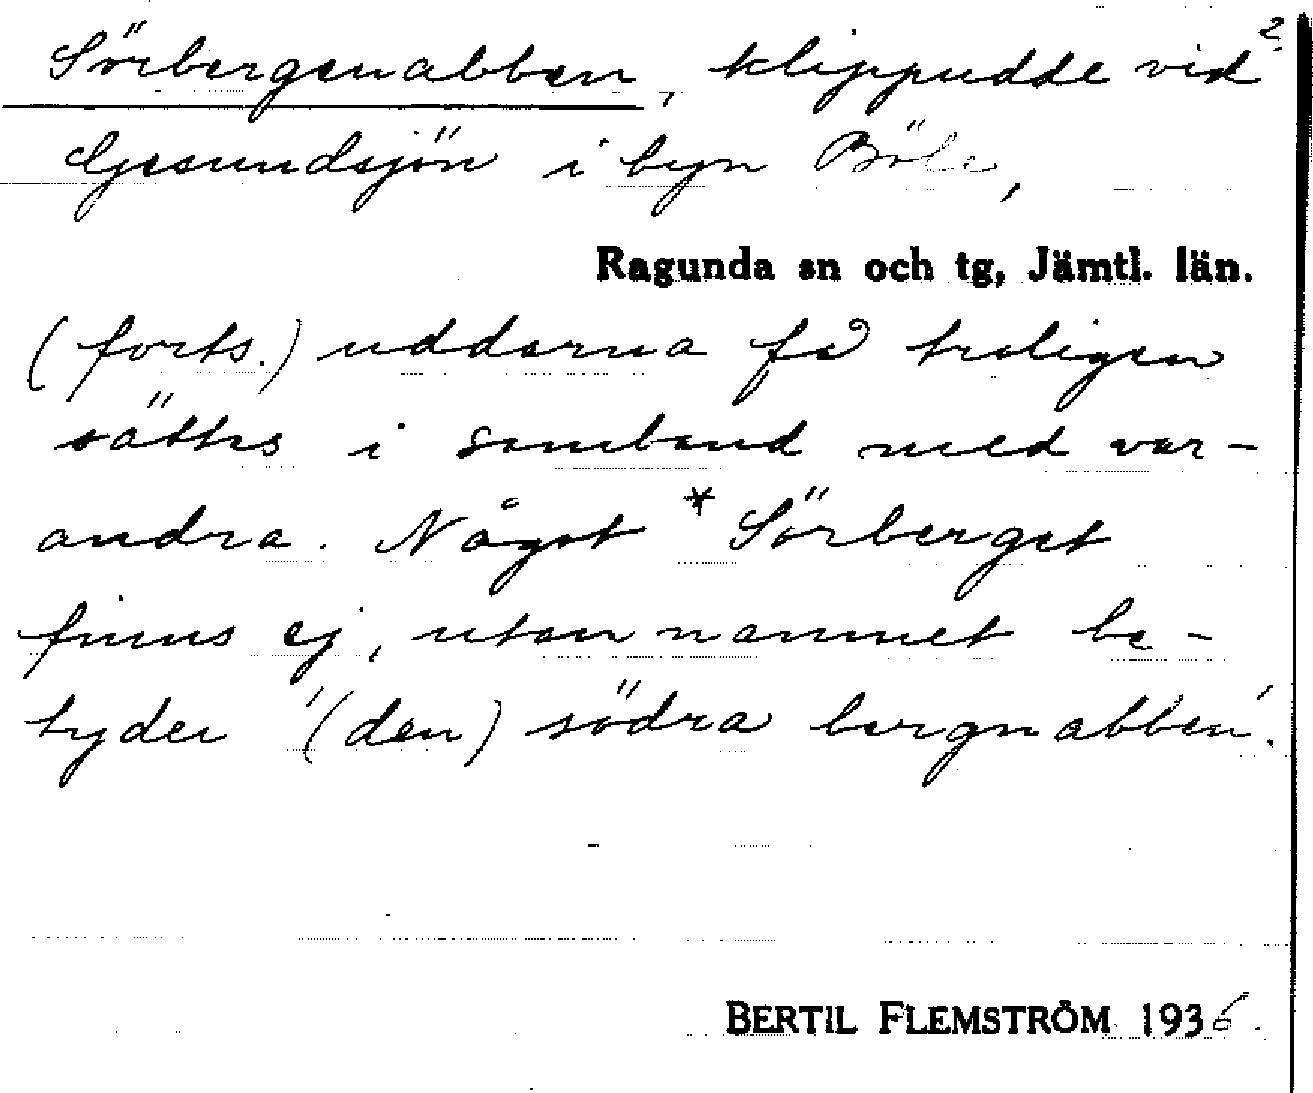 2.
Sörbergsnabben, klippudde vid
Gesundsjön i byn Böle,
Ragunda sn och tg, Jämtl. län.
(forts.) uddarna få troligen
sättas i samband med var-
andra. Något *Sörberget
finns ej, utan namnet be-
tyder '(den) södra bergnabben'.
BERTIL FLEMSTRÖM 1936.